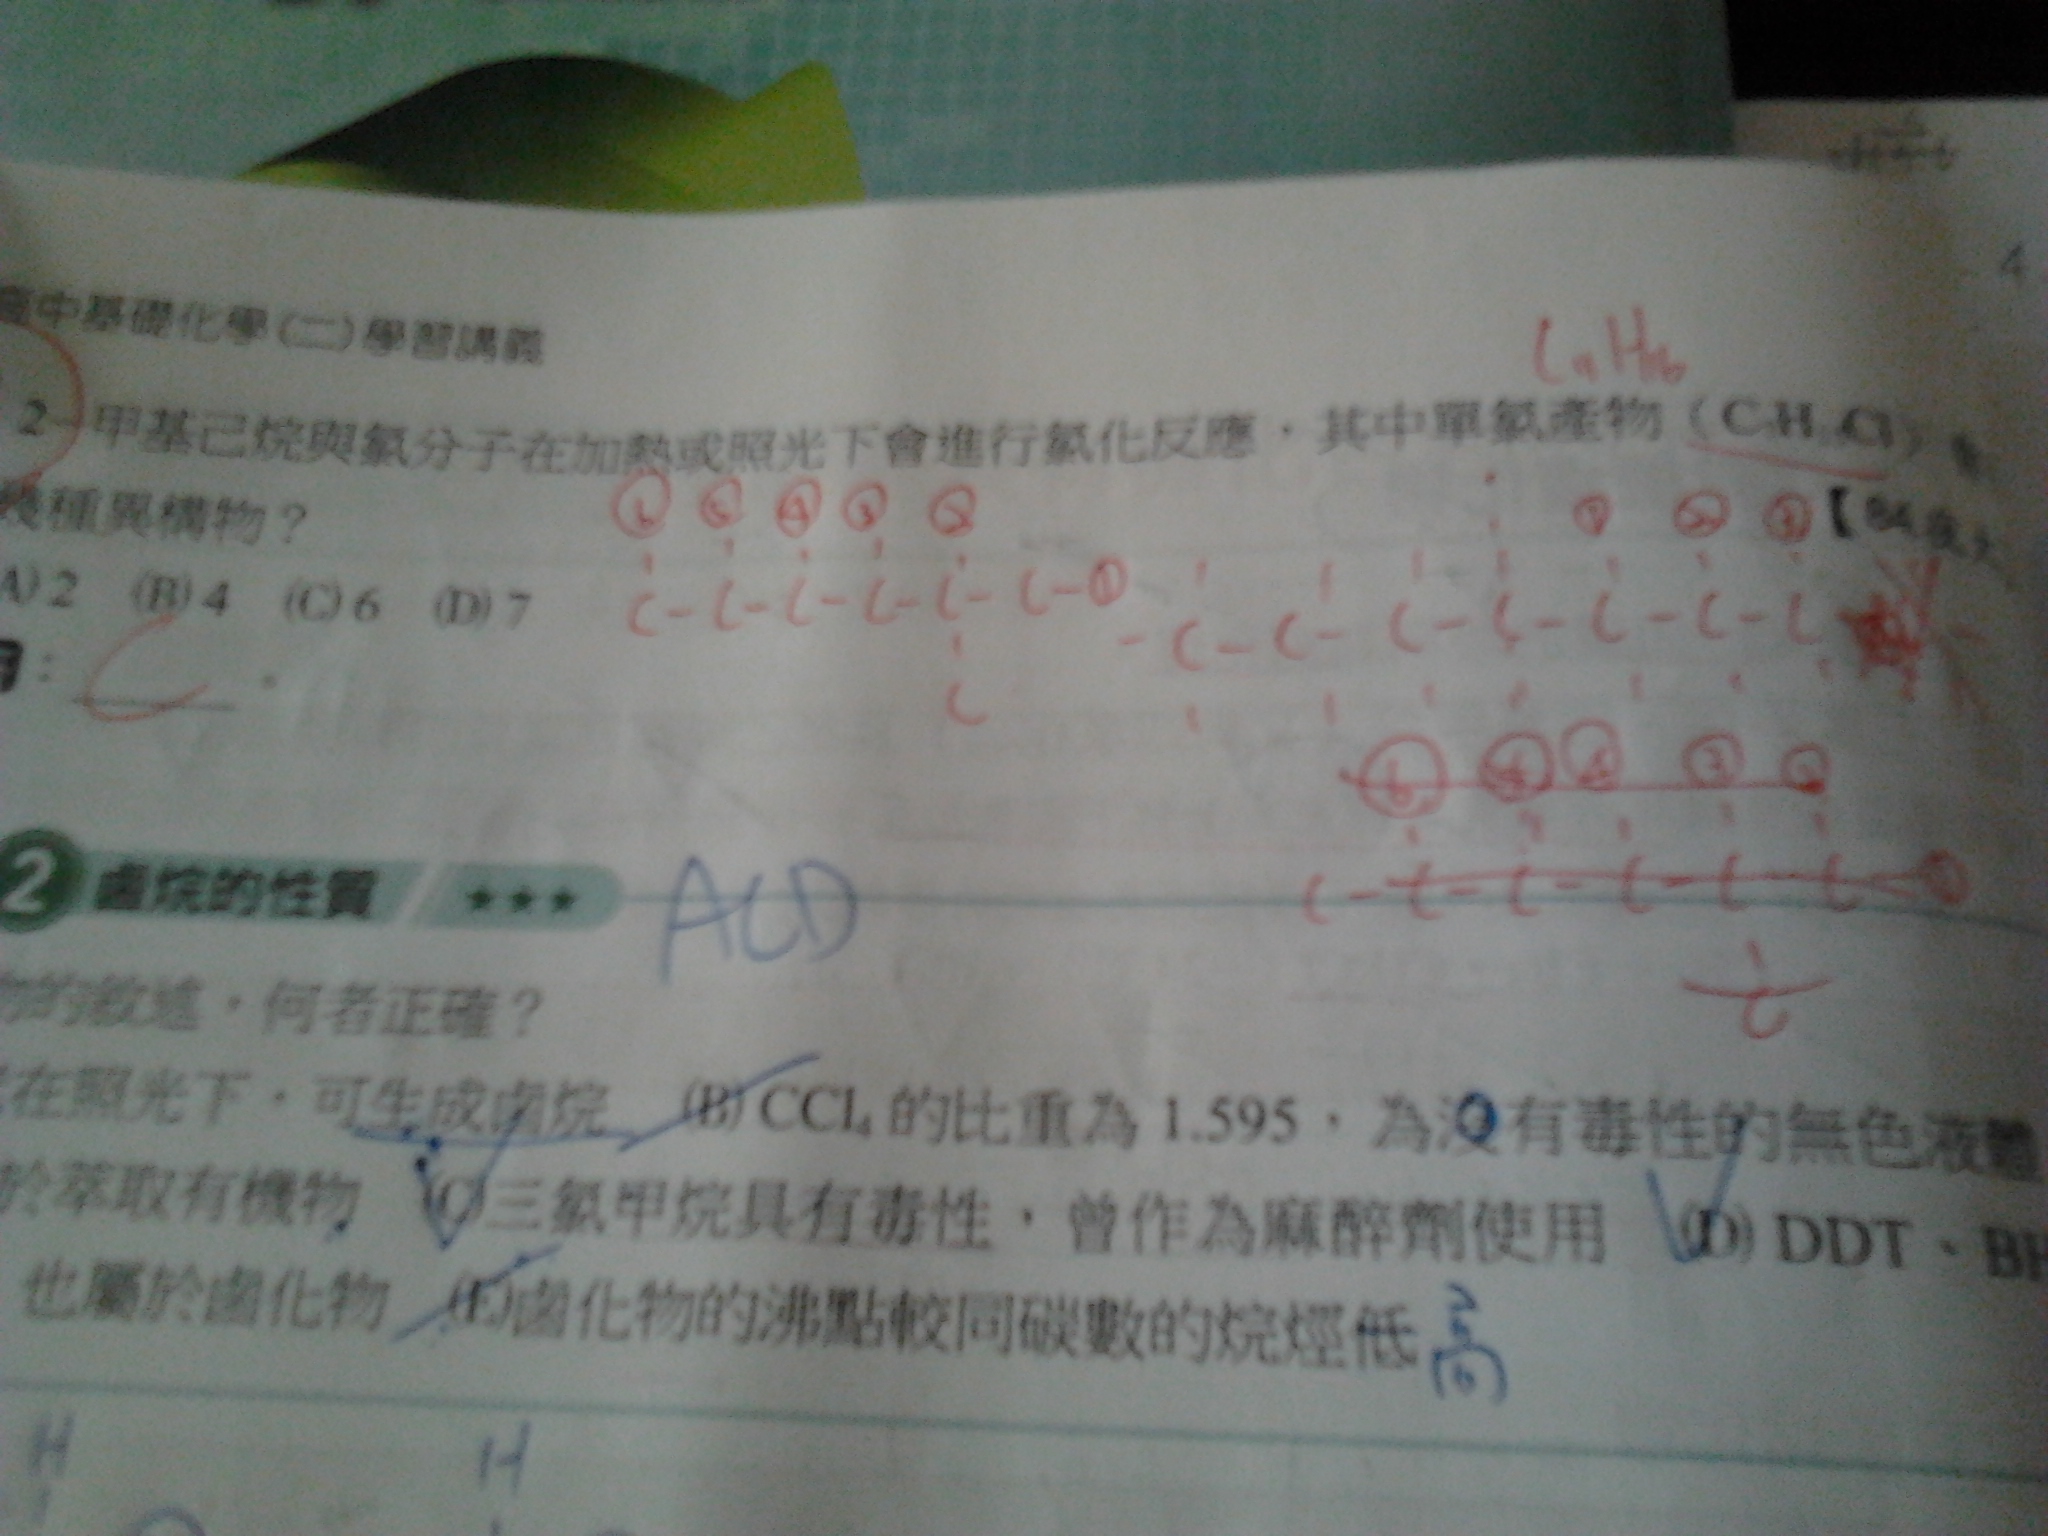 高中基礎化學(二)學習講義
C₇H₁₆
2-甲基己烷與氯分子在加熱或照光下會進行氯化反應，其中單氯產物（C₇H₁₅Cl）
幾種異構物？
⑥ ⑤ ④ ③ ②
① ② ③
(A) 2 (B) 4 (C) 6 (D) 7
C-C-C-C-C-C-①
C
-C-C-C-C-C-C-C
：C。
⑥ ⑤ ④ ③ ②
C-C-C-C-C-C
C
2 鹵烷的性質 ★★★
ACD
的敘述，何者正確？
在照光下，可生成鹵烷 (B) CCl₄ 的比重為 1.595，為沒有毒性的無色液體
於萃取有機物 (C)三氯甲烷具有毒性，曾作為麻醉劑使用 (D) DDT、BH
也屬於鹵化物 (E)鹵化物的沸點較同碳數的烷烴低
高
H H